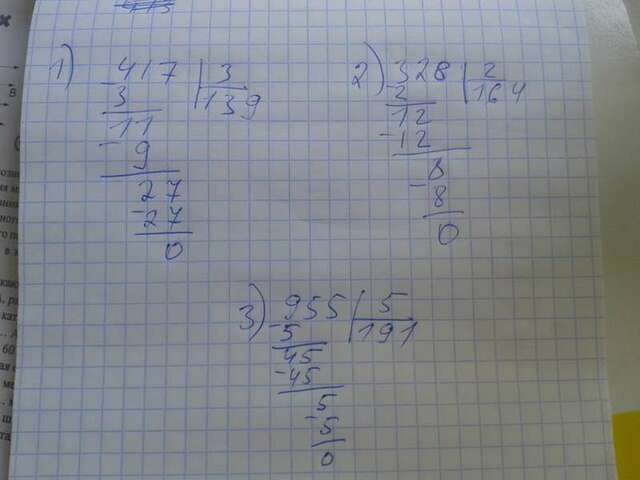 1) 417 | 3
- 3 | 139
11
- 9
27
- 27
0
2) 328 | 2
- 2 | 164
12
- 12
8
- 8
0
3) 955 | 5
- 5 | 191
45
- 45
5
- 5
0